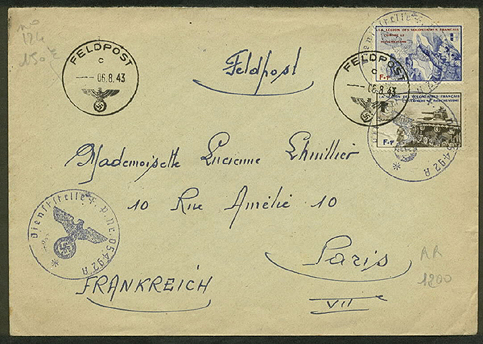 no
124
150
FELDPOST
c
06.8.43
Feldpost
FELDPOST
c
06.8.43
LA LEGION DES VOLONTAIRES FRANÇAIS
CONTRE LE
BOLCHEVISME
F+F
LA LEGION DES VOLONTAIRES FRANÇAIS
CONTRE LE BOLCHEVISME
F+F
05492 A
Mademoiselle Lucienne Lhuillier
10 Rue Amélie 10
Paris
VII
FRANKREICH
Dienststelle F.P.Nr. 05492 A
AA
1200